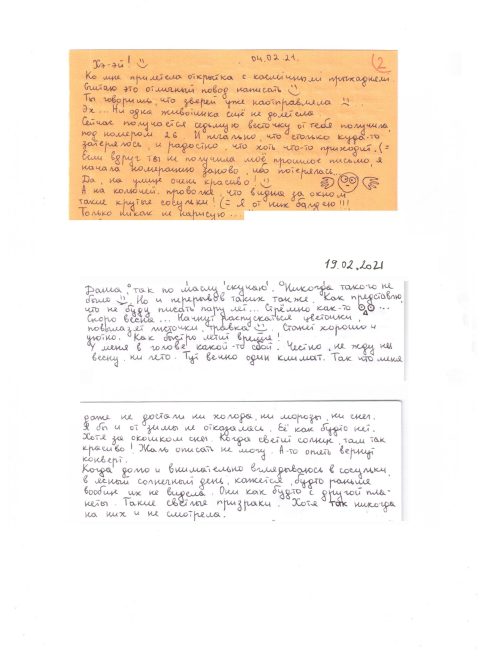 04.02.21.
2
Хэ-эй!
Ко мне прилетела открытка с космическими пришельцами.
Считаю это отличный повод написать
Ты говоришь, что зверей уже наотправляла
Эх... Ни одна животинка ещё не долетела.
Сейчас получается седьмую весточку от тебя получила,
под номером 26. И печально, что столько куда-то
затерялось, и радостно, что хоть что-то приходит. (=
Если вдруг ты не получила моё прошлое письмо, я
начала нумерацию заново, ибо потерялась.
Да, на улице очень красиво!
А на колючей проволке, что видна за окном
такие крутые сосульки! (= Я от них балдею!!!
Только никак не нарисую...
19.02.2021
Даша, так по маслу скучаю. Никогда такого не
было. Но и перерывов таких также. Как представлю,
что не буду писать пару лет... Стрёмно как-то ...
Скоро весна... Начнут распускаться цветочки,
повылазят листочки, травка. Станет хорошо и
уютно. Как быстро летит время!
У меня в голове какой-то сбой. Честно, не жду ни
весну, ни лето. Тут вечно один климат. Так что меня
даже не достали ни холода, ни морозы, ни снег.
Я бы и от зимы не отказалась. Её как будто нет.
Хотя за окошком снег. Когда светит солнце, там так
красиво! Жаль описать не могу. А-то опять вернут
конверт.
Когда долго и внимательно вглядываюсь в сосульки,
в ясный солнечный день, кажется, будто раньше
вообще их не видела. Они как будто с другой пла-
неты. Такие светлые призраки. Хотя так никогда
на них и не смотрела.